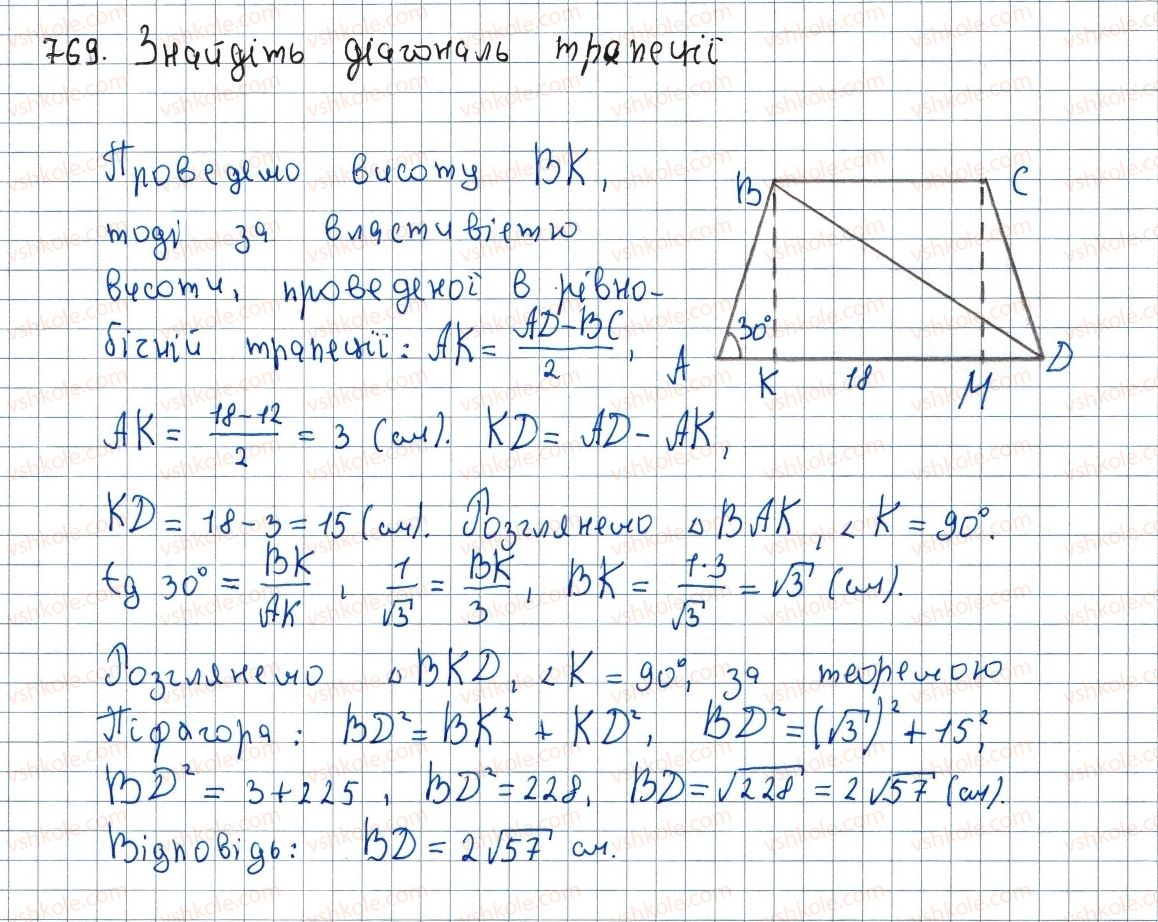 769. Знайдіть діагональ трапеції
Проведемо висоту BK,
тоді за властивістю
висоти, проведеної в рівно-
бічній трапеції: AK = (AD-BC)/2,
B C
30°
A K 18 M D
AK = (18-12)/2 = 3 (см). KD = AD - AK,
KD = 18-3 = 15 (см). Розглянемо ▵ BAK, ∠ K = 90°.
tg 30° = BK/AK, 1/√3 = BK/3, BK = (1·3)/√3 = √3 (см).
Розглянемо ▵ BKD, ∠ K = 90°, за теоремою
Піфагора: BD² = BK² + KD², BD² = (√3)² + 15²,
BD² = 3+225, BD² = 228, BD = √228 = 2√57 (см).
Відповідь: BD = 2√57 см.
vshkole.com